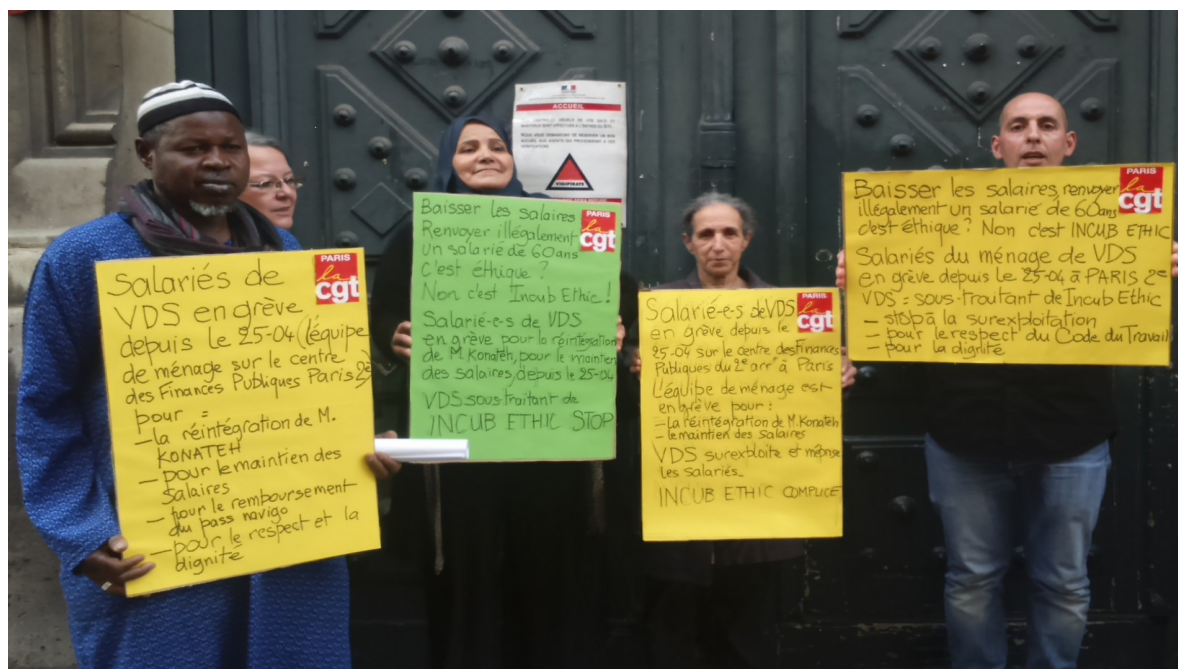 ACCUEIL
VIGIPIRATE
PARIS
la
cgt
Salariés de
VDS en grève
depuis le 25-04 (l'équipe
de ménage sur le centre
des Finances Publiques Paris 2è
pour :
- la réintégration de M.
KONATEH
- pour le maintien des
salaires
- pour le remboursement
du pass navigo
- pour le respect et la
dignité
PARIS
la
cgt
Baisser les salaires
Renvoyer illégalement
un salarié de 60 ans
c'est éthique ?
Non c'est Incub Ethic !
Salarié-e-s de VDS
en grève pour la réintégration
de M. Konatéh, pour le maintien
des salaires, depuis le 25-04
VDS sous-traitant de
INCUB ETHIC STOP
PARIS
la
cgt
Salarié-e-s de VDS
en grève depuis le
25-04 sur le centre des Finances
Publiques du 2e arrt à Paris
L'équipe de ménage est
en grève pour :
- La réintégration de M. Konatéh
- le maintien des salaires
VDS surexploite et méprise
les salariés.
INCUB ETHIC COMPLICE
PARIS
la
cgt
Baisser les salaires, renvoyer
illégalement un salarié de 60 ans
c'est éthique ? Non c'est INCUB ETHIC
Salariés du ménage de VDS
en grève depuis le 25-04 à PARIS 2e
VDS = sous-traitant de Incub Ethic
- stop à la surexploitation
- pour le respect du Code du Travail
- pour la dignité